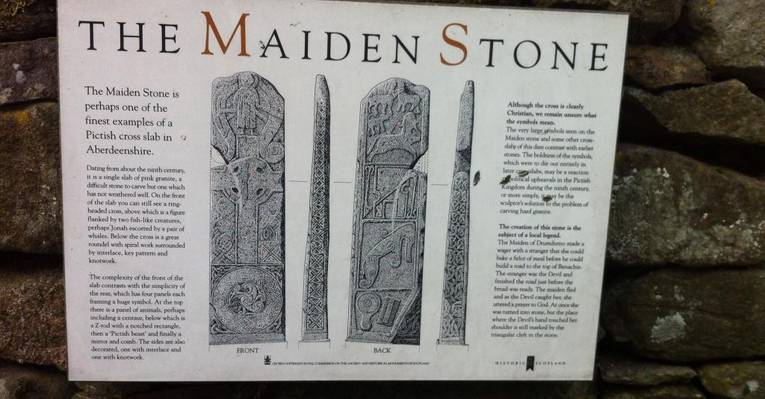 THE MAIDEN STONE
The Maiden Stone is
perhaps one of the
finest examples of a
Pictish cross slab in
Aberdeenshire.
Dating from about the ninth century,
it is a single slab of pink granite, a
difficult stone to carve but one which
has not weathered well. On the front
of the slab you can still see a ring-
headed cross, above which is a figure
flanked by two fish-like creatures,
perhaps Jonah escorted by a pair of
whales. Below the cross is a great
roundel with spiral work surrounded
by interlace, key pattern and
knotwork.
The complexity of the front of the
slab contrasts with the simplicity of
the rear, which has four panels each
framing a huge symbol. At the top
there is a panel of animals, perhaps
including a centaur, below which is
a Z-rod with a notched rectangle,
then a 'Pictish beast' and finally a
mirror and comb. The sides are also
decorated, one with interlace and
one with knotwork.
FRONT
BACK
Although the cross is clearly
Christian, we remain unsure what
the symbols mean.
The very large symbols seen on the
Maiden stone and some other cross-
slabs of this date contrast with earlier
stones. The boldness of the symbols,
which were to die out entirely in
later slabs, may be a reaction
political upheavals in the Pictish
Kingdom during the ninth century,
or more simply, it may be the
sculptor's solution to the problem of
carving hard granite.
The creation of this stone is the
subject of a local legend.
The Maiden of Drumdurno made a
wager with a stranger that she could
bake a firlot of meal before he could
build a road to the top of Benachie.
The stranger was the Devil and
finished the road just before the
bread was ready. The maiden fled
and as the Devil caught her, she
uttered a prayer to God. At once she
was turned into stone, but the place
where the Devil's hand touched her
shoulder is still marked by the
triangular cleft in the stone.
HISTORIC SCOTLAND